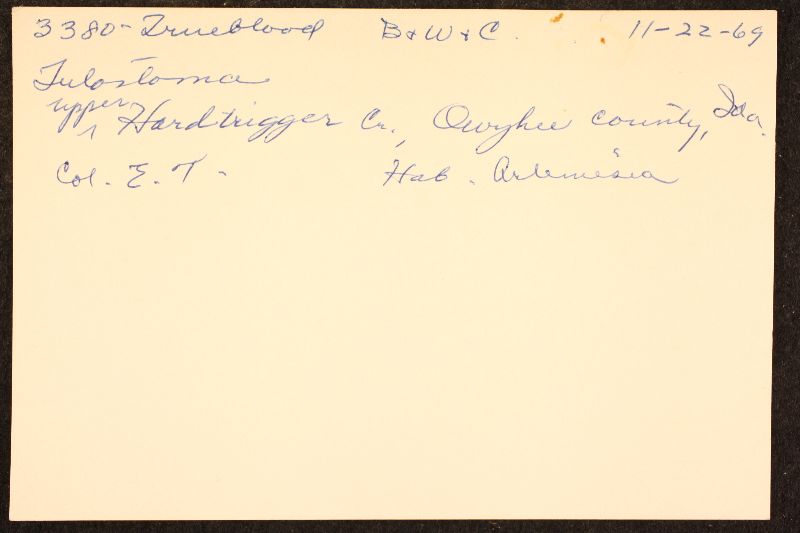 3380-Trueblood B+W+C. 11-22-69
Tulostoma
upper Hardtrigger Cr., Owyhee county, Ida.
Col. E. T. Hab. Artemesia